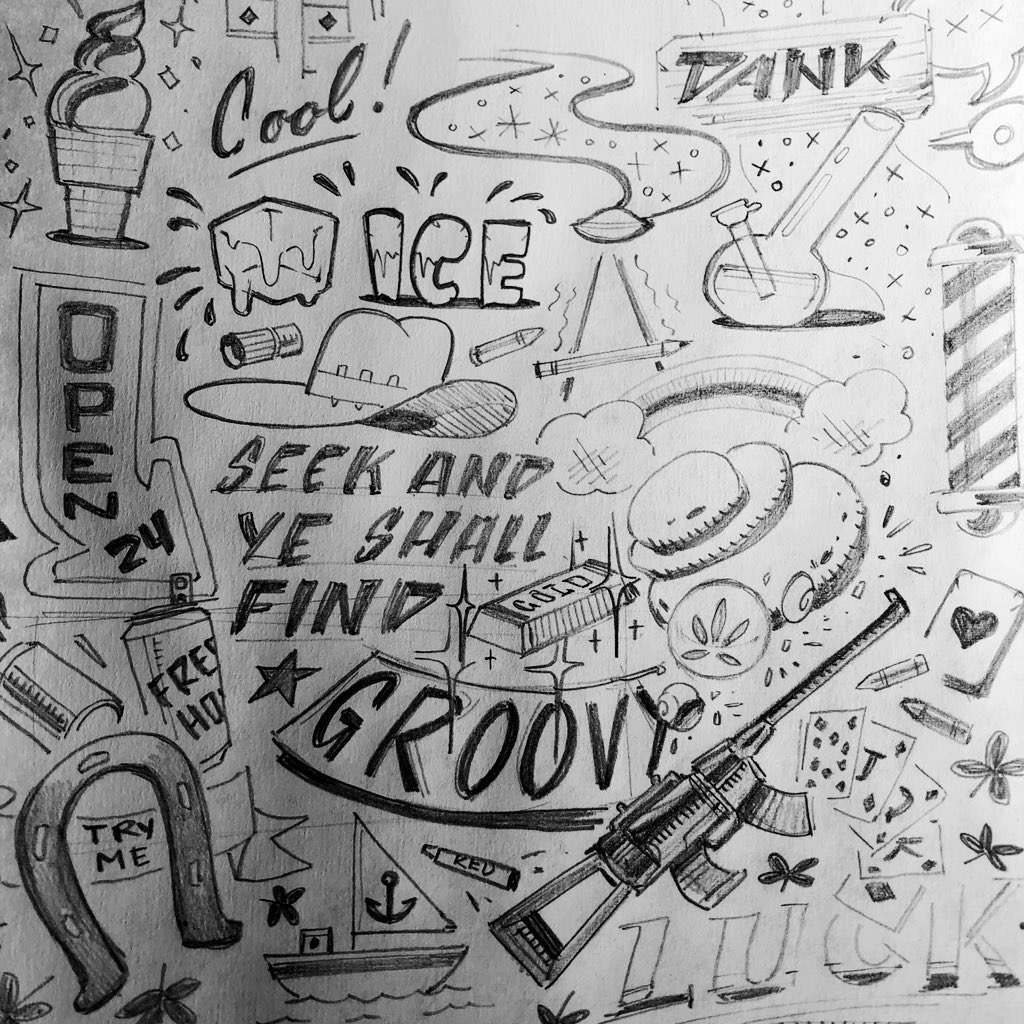 Cool!
DANK
ICE
OPEN
24
SEEK AND
YE SHALL
FIND
GOLD
GROOVY
TRY
ME
RED
J
K
LUCK